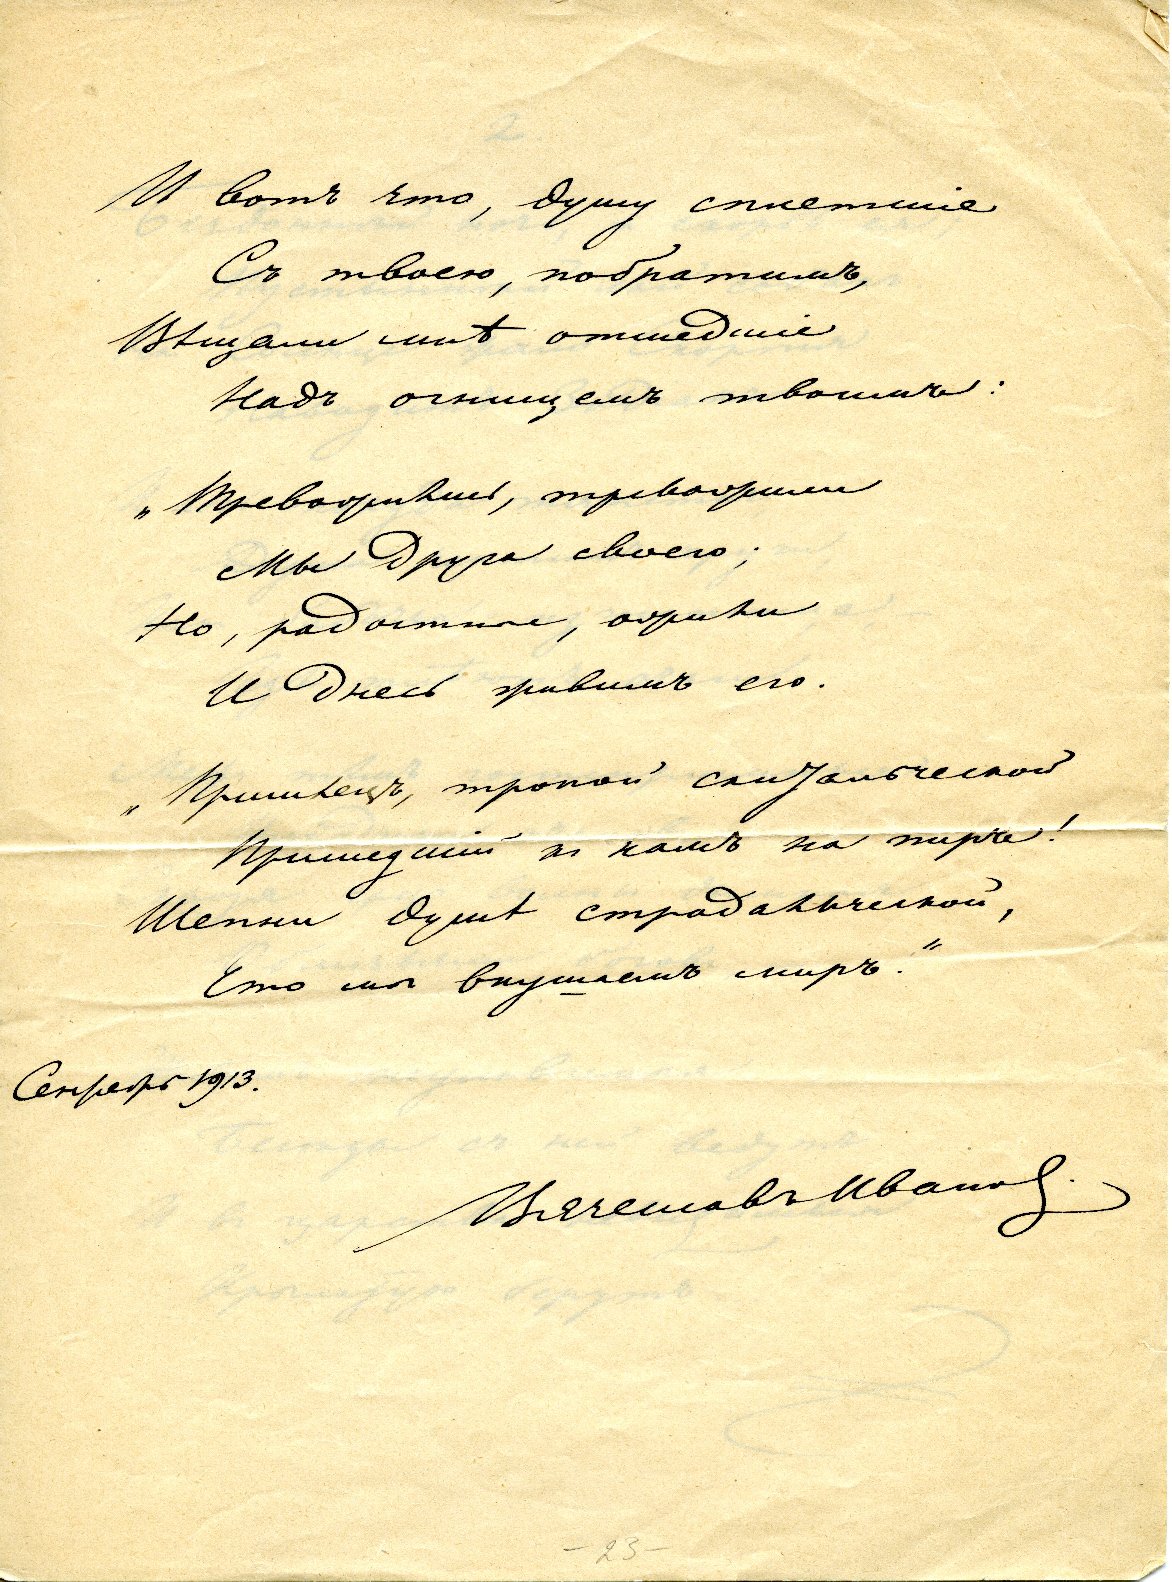 И вотъ что, душу сплетшіе
Съ твоею, побратимъ,
Вѣщали мнѣ отшедшіе
Надъ огнищемъ твоимъ:
„Тревожились, тревожили
Мы друга своего;
Но, радостные, ожили
И днесь живимъ его.
„Пришлецъ, тропой скитальческой
Пришедшій къ намъ на пиръ!
Шепни душѣ страдальческой,
Что мы вкушаемъ миръ."
Сентябрь 1913.
Вячеславъ Ивановъ.
2
- 23 -